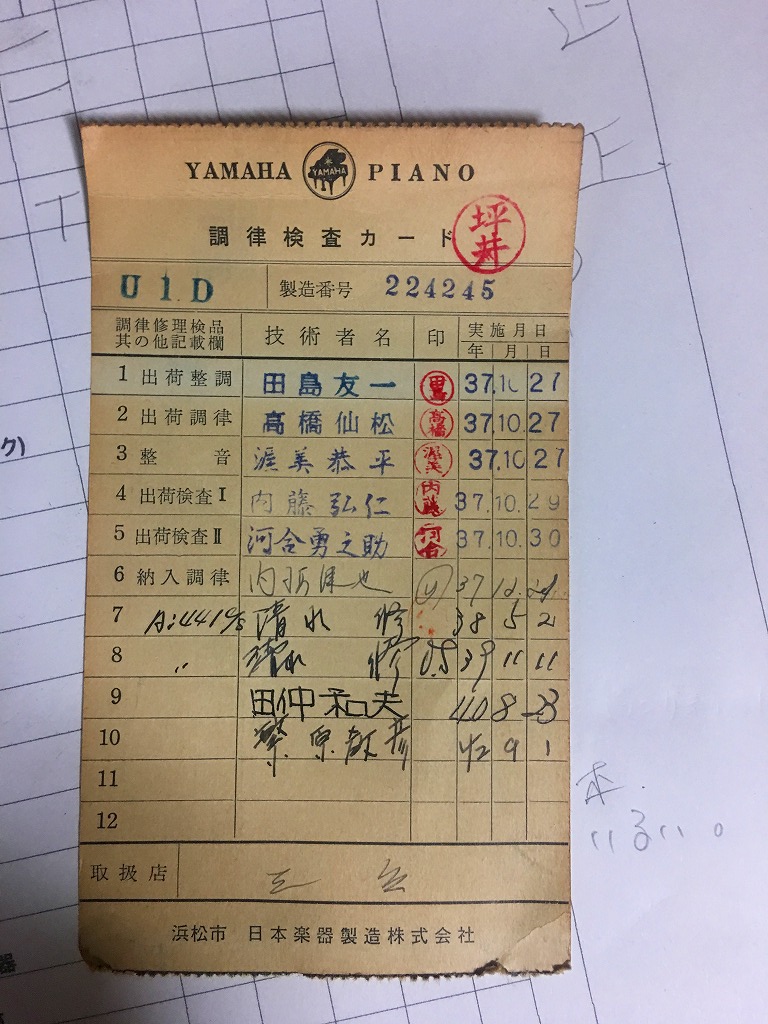 YAMAHA YAMAHA PIANO
調律検査カード 坪井
U1D 製造番号 224245
調律修理検品 其の他記載欄 技術者名 印 実施月日 年 月 日
1 出荷整調 田島友一 田島 37.10 27
2 出荷調律 高橋仙松 高橋 37.10.27
3 整音 渥美恭平 渥美 37.10 27
4 出荷検査I 内藤弘仁 内藤 37.10.29
5 出荷検査II 河合勇之助 河合 37.10.30
6 納入調律 37
7 A:441c/s 清水 修 38 5 2
8 〃 清水 修 39 11 11
9 田仲和夫 40 8 23
10 原 42 9 1
11
12
取扱店
浜松市 日本楽器製造株式会社
ク)
正
本.
いるい。
器